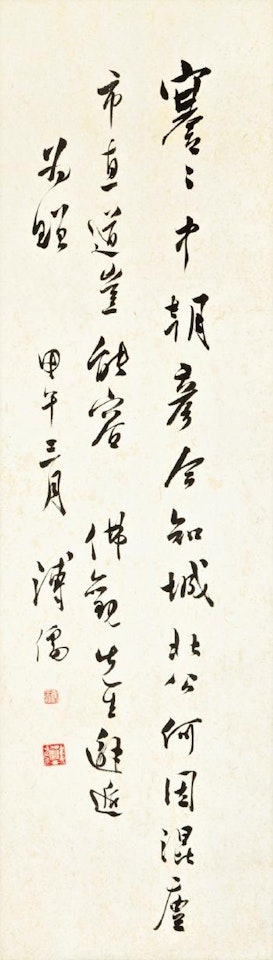 謇〻中朝彥今知城北公何因混廛
市直道豈能容 佛觀先生邂逅
為贈 甲午三月 溥儒